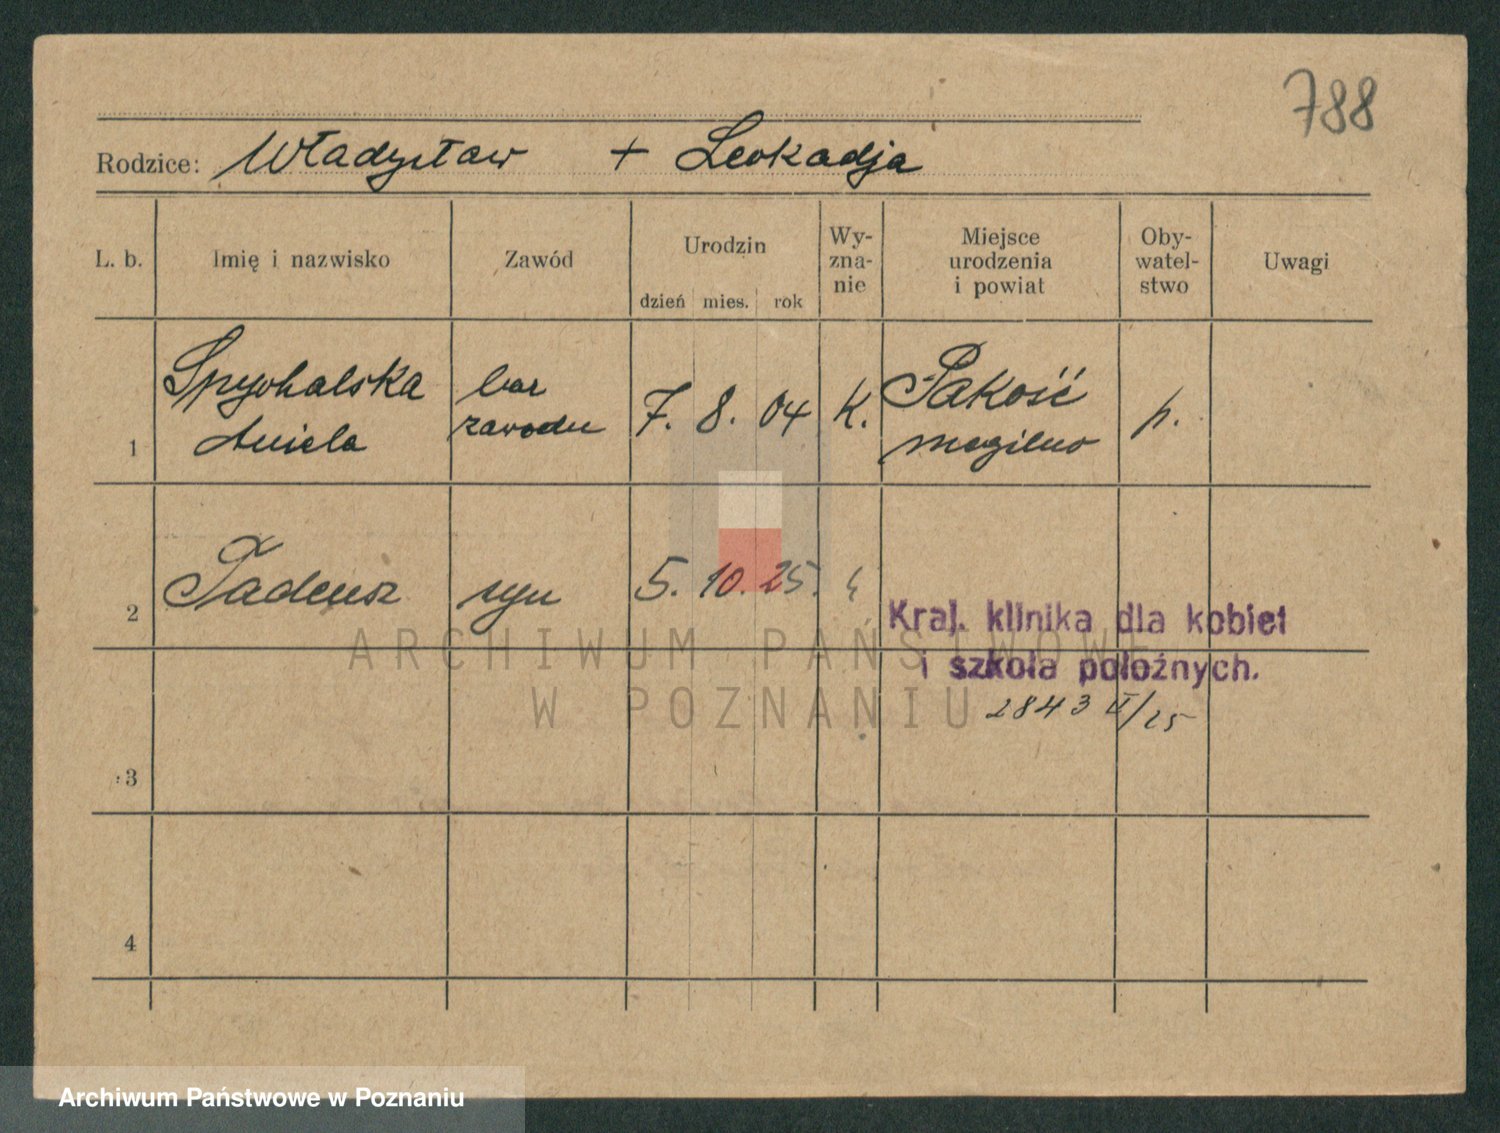 788
Rodzice: Władysław + Leokadja
L. b. Imię i nazwisko Zawód Urodzin dzień mies. rok Wy-zna-nie Miejsce urodzenia i powiat Oby-watel-stwo Uwagi
1 Spychalska Aniela bez zawodu 7. 8. 04 K. Pakość Mogilno p.
2 Tadeusz syn 5. 10. 25.
Kraj. klinika dla kobiet
i szkoła położnych.
2843 II/25
3
4
ARCHIWUM PAŃSTWOWE
W POZNANIU
Archiwum Państwowe w Poznaniu